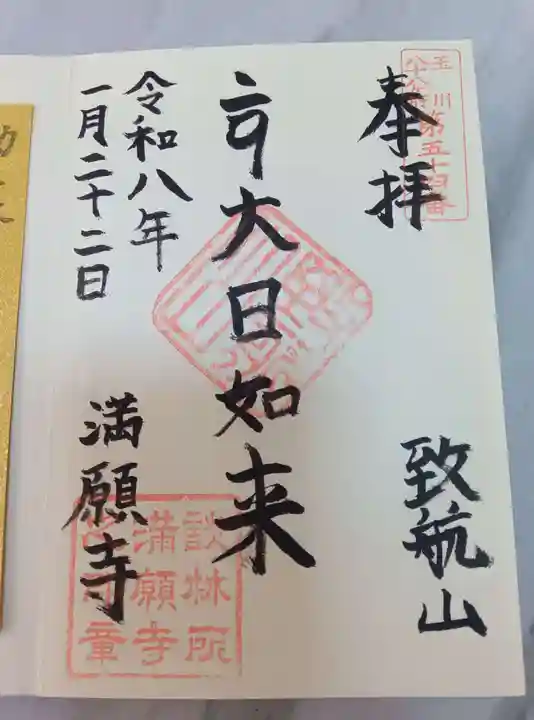 玉川
八十八所第五十四番
奉拝
致航山
大日如来
令和八年
一月二十二日
満願寺
談林所
満願寺
章